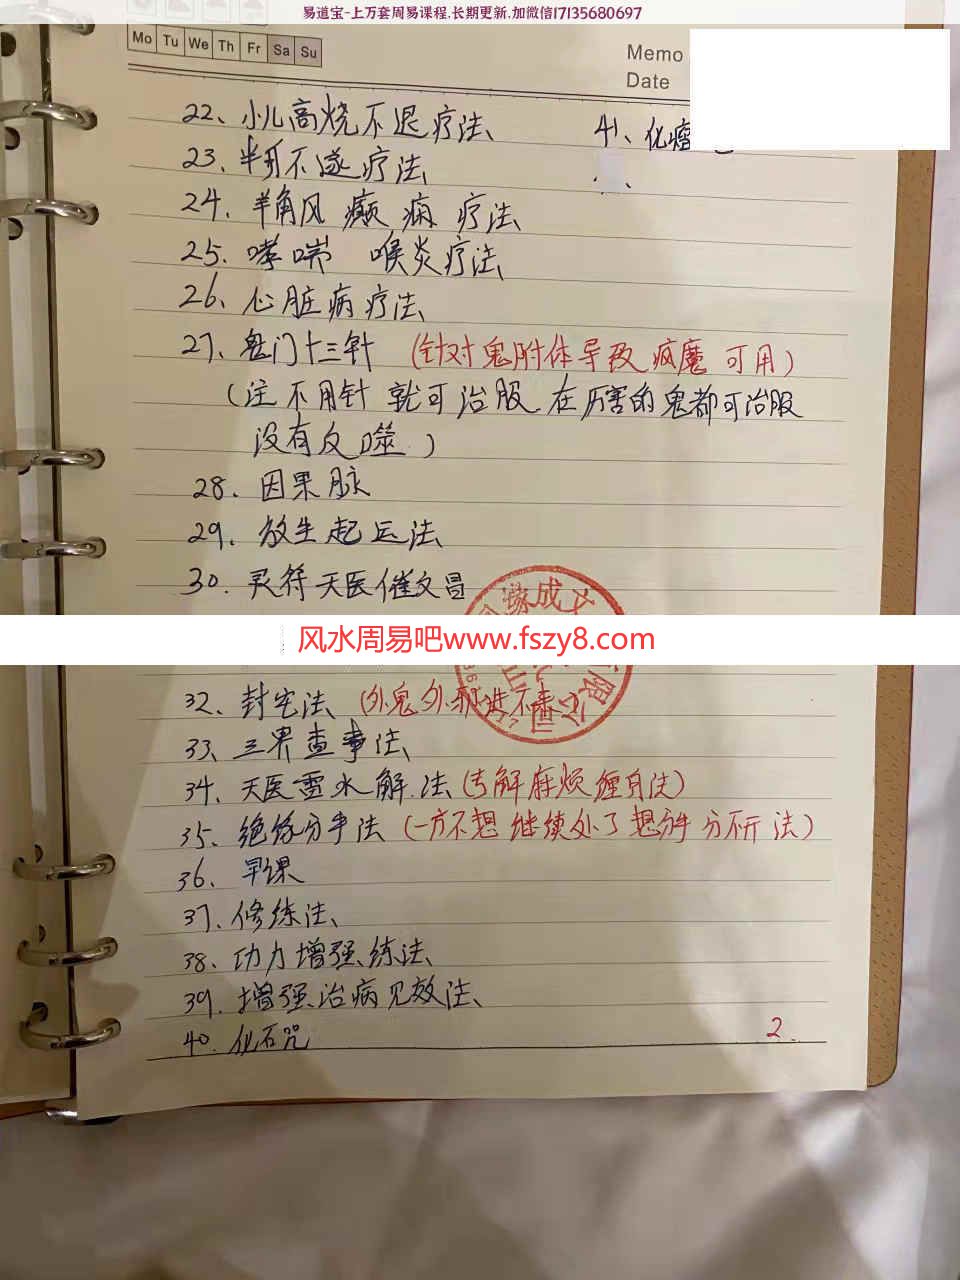 易道宝-上万套周易课程.长期更新.加微信17135680697
Mo Tu We Th Fr Sa Su
Memo
Date
22、小儿高烧不退疗法、
41、化
23、半身不遂疗法
24、羊角风 癫痫 疗法、
25、哮喘 喉炎疗法、
26、心脏病疗法、
27、鬼门十三针 (针对鬼附体导致疯魔 可用)
(注 不用针 就可治服 在厉害的鬼都可治服
没有反噬.)
28、因果脉
29、放生起运法、
30、灵符天医催文昌
缘成文
风水周易吧www.fszy8.com
有限公司
32、封宅法、(外鬼外邪进不来)
33、三界查事法、
34、天医雷水解.法(专解麻烦缠身法)
35、绝缘分手法 (一方不想继续处了想分手 分开法)
36、早课
37、修练法、
38、功力增强练法、
39、增强治病见效法、
40、化石咒
2.